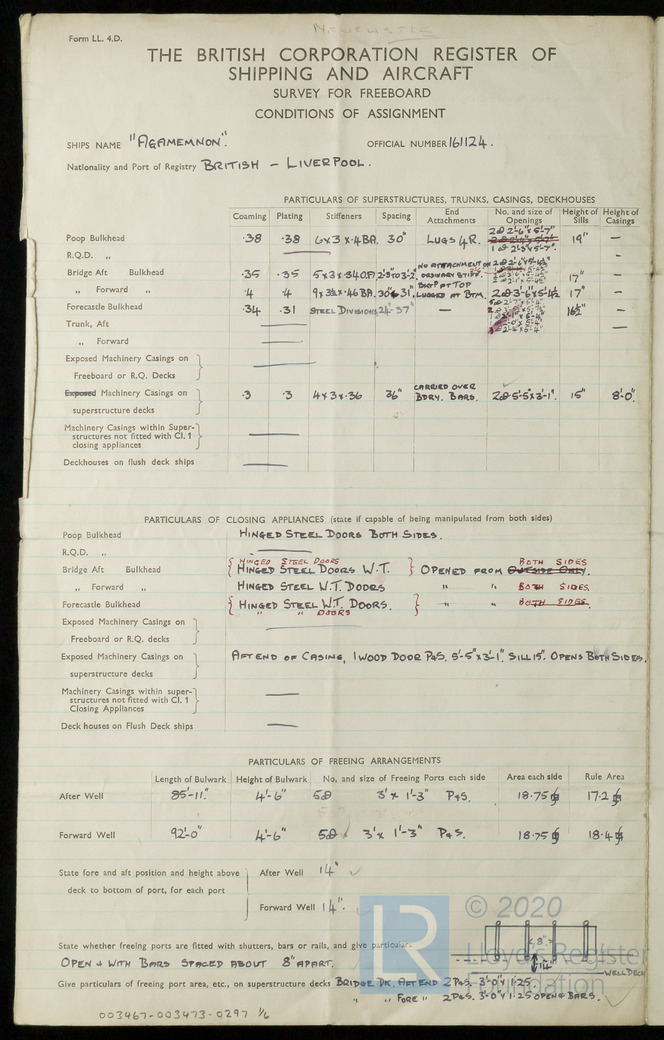 NEWCASTLE
Form LL. 4.D.
THE BRITISH CORPORATION REGISTER OF
SHIPPING AND AIRCRAFT
SURVEY FOR FREEBOARD
CONDITIONS OF ASSIGNMENT
SHIPS NAME "AGAMEMNON". OFFICIAL NUMBER 161124.
Nationality and Port of Registry BRITISH - LIVERPOOL.
PARTICULARS OF SUPERSTRUCTURES, TRUNKS, CASINGS, DECKHOUSES
Coaming Plating Stiffeners Spacing End Attachments No. and size of Openings Height of Sills Height of Casings
Poop Bulkhead .38 .38 6x3x.4 BA. 30" LUGS 4R. 19" —
R.Q.D. „ —
Bridge Aft Bulkhead .35 .35 5x3x.34 NO ATTACHMENT ORDINARY STIFF. 17" —
„ Forward „ .4 .4 9x3½x.46 BA. 30" & 31" LUGGED AT BTM. 2@3'-6"x5'-4½ 17" —
Forecastle Bulkhead .34 .31 STEEL DIVISIONS 24"-37" — 16½" —
Trunk, Aft — —
„ Forward —
Exposed Machinery Casings on
Freeboard or R.Q. Decks —
Exposed Machinery Casings on
superstructure decks .3 .3 4x3x.36 36" CARRIED OVER BDRY. BARS. 2@5'-5"x3'-1". 15" 8'-0".
Machinery Casings within Super-
structures not fitted with Cl. 1 —
closing appliances
Deckhouses on flush deck ships —
PARTICULARS OF CLOSING APPLIANCES (state if capable of being manipulated from both sides)
Poop Bulkhead HINGED STEEL DOORS BOTH SIDES.
R.Q.D. „ —
HINGED STEEL DOORS BOTH SIDES
Bridge Aft Bulkhead HINGED STEEL DOORS W.T. OPENED FROM OUTSIDE ONLY.
„ Forward „ HINGED STEEL W.T. DOORS „ „ BOTH SIDES.
Forecastle Bulkhead HINGED STEEL W.T. DOORS. „ „ BOTH SIDES.
„ „ DOORS
Exposed Machinery Casings on
Freeboard or R.Q. decks —
Exposed Machinery Casings on AFT END OF CASING, 1 WOOD DOOR P&S. 5'-5"x3'-1". SILL 15". OPENS BOTH SIDES.
superstructure decks
Machinery Casings within super-
structures not fitted with Cl. 1 —
Closing Appliances
Deck houses on Flush Deck ships —
PARTICULARS OF FREEING ARRANGEMENTS
Length of Bulwark Height of Bulwark No, and size of Freeing Ports each side Area each side Rule Area
After Well 85'-11" 4'-6" 5@ 3'x 1'-3" P&S. 18.75 17.2
Forward Well 92'-0" 4'-6" 5@ 3'x 1'-3" P&S. 18.75 18.4
State fore and aft position and height above After Well 14"
deck to bottom of port, for each port
Forward Well 14".
© 2020
LR
Lloyd's Register
Foundation
8"
14"
WELL DECK
State whether freeing ports are fitted with shutters, bars or rails, and give particulars.
OPEN & WITH BARS SPACED ABOUT 8" APART.
Give particulars of freeing port area, etc., on superstructure decks BRIDGE DK. AFT END 2 P&S. 3'-0"x1.25
„ „ FORE „ 2 P&S. 3'-0"x1.25 OPEN & BARS.
003467-003473-0297 1/6